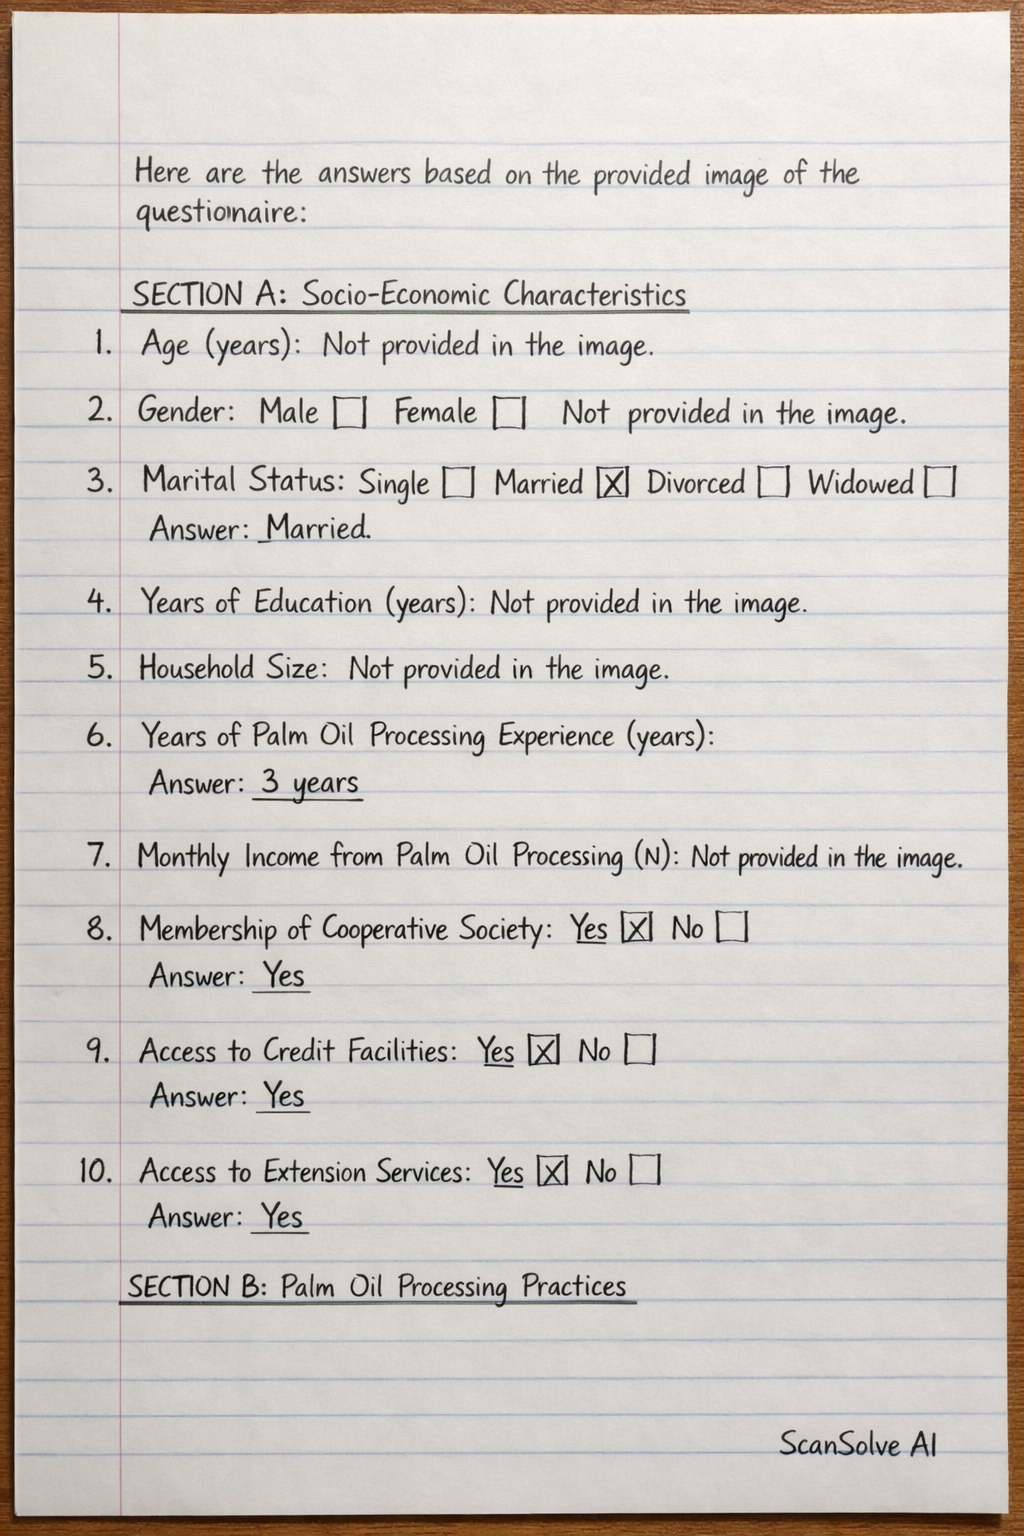 Here are the answers based on the provided image of the
questionnaire:
SECTION A: Socio-Economic Characteristics
1. Age (years): Not provided in the image.
2. Gender: Male ☐ Female ☐ Not provided in the image.
3. Marital Status: Single ☐ Married ☒ Divorced ☐ Widowed ☐
Answer: Married.
4. Years of Education (years): Not provided in the image.
5. Household Size: Not provided in the image.
6. Years of Palm Oil Processing Experience (years):
Answer: 3 years
7. Monthly Income from Palm Oil Processing (N): Not provided in the image.
8. Membership of Cooperative Society: Yes ☒ No ☐
Answer: Yes
9. Access to Credit Facilities: Yes ☒ No ☐
Answer: Yes
10. Access to Extension Services: Yes ☒ No ☐
Answer: Yes
SECTION B: Palm Oil Processing Practices
ScanSolve AI